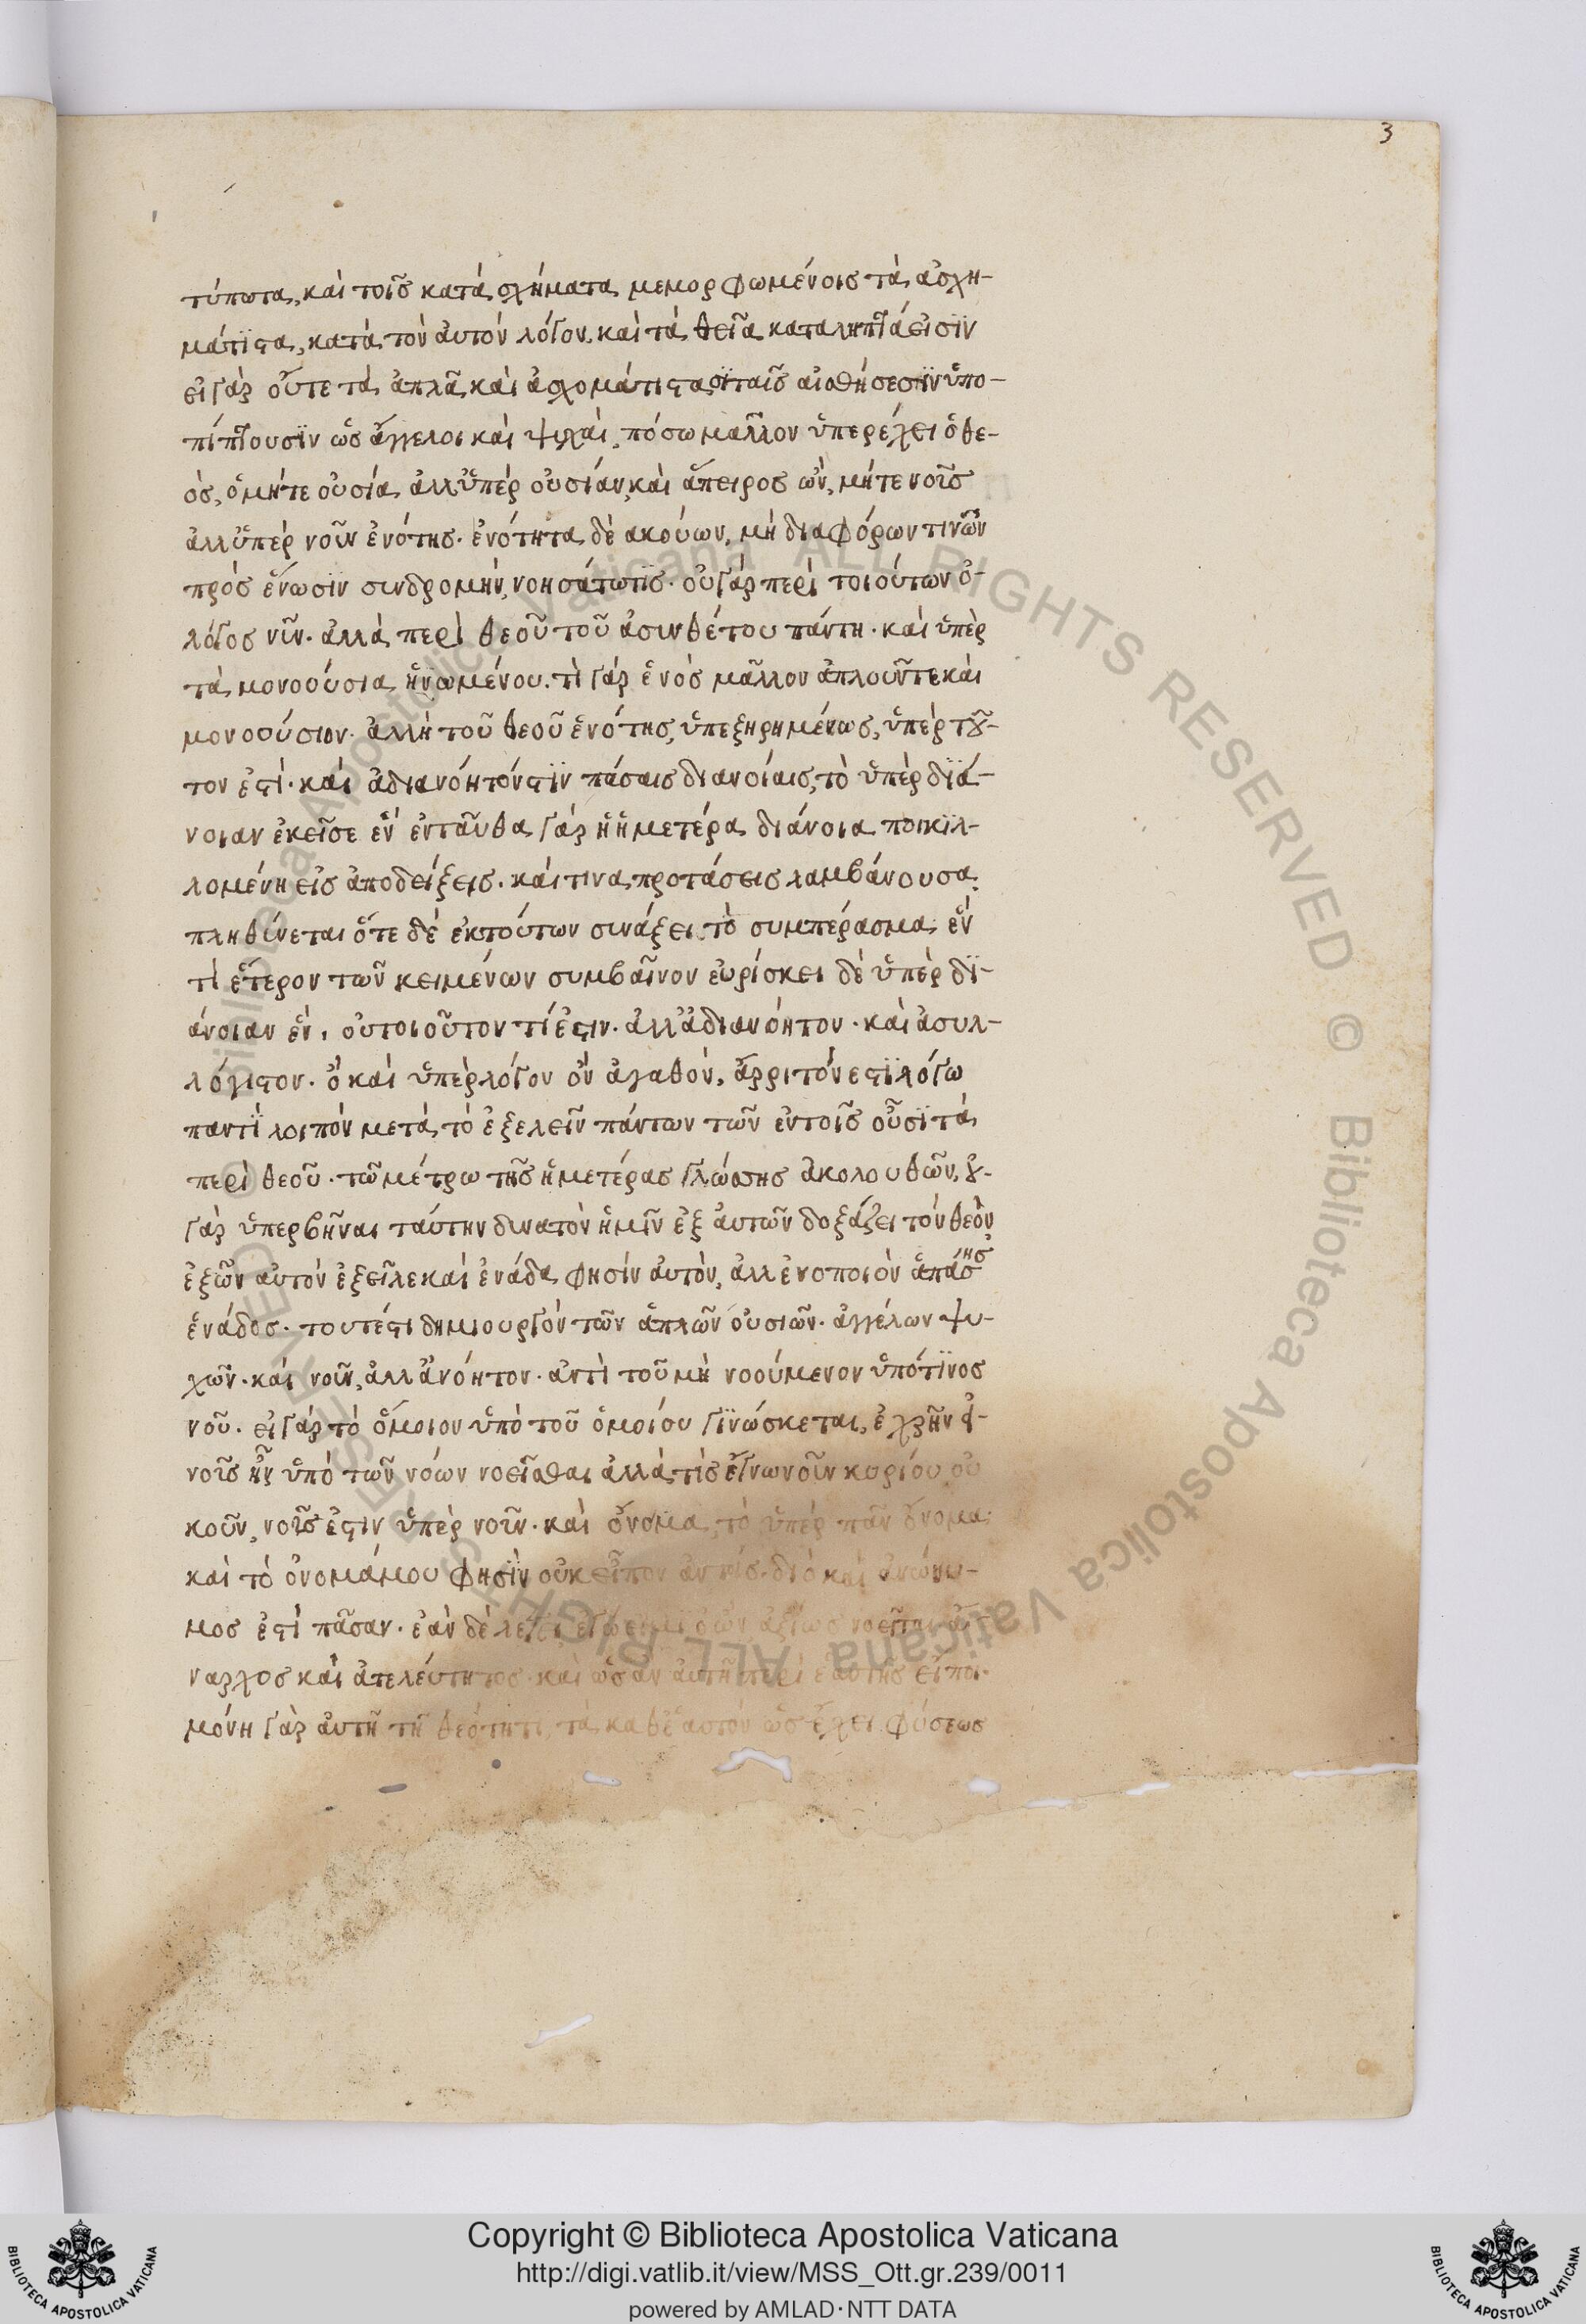 3
τύπωτα, και τοῖς κατά σχήματα μεμορφωμένοις τὰ ἀσχη-
μάτϊστα, κατὰ τὸν ἀυτόν λόγον. και τὰ θεῖα καταληπτὰ εἰσϊν
εἰ γὰρ οὔτε τὰ ἁπλᾶ και ἀσχομάτιστα ταῖς αἰσθήσεσϊν ὑπο-
πίπτουσϊν ὡς ἄγγελοι και ψιχαὶ, πόσω μαλλον ὑπερέχει ὁ θε-
ὸς, ὁ μήτε οὐσία ἀλλ ὑπὲρ οὐσίαν, και ἄπειρος ὢν, μήτε νοῖς
ἀλλ ὑπέρ νοῖν ἑνότης. ἑνότητα δὲ ακούων, μὴ διαφόρων τινῶν
πρὸς ἕνωσϊν σινδρομὴν, νοησάτω τϊς. οὐ γὰρ περὶ τοιούτων ὁ-
λόγος νῖν. ἀλλὰ περὶ θεοῦ τοῦ ἀσινθέτου πάντη. και ὑπὲρ
τὰ μονοούσια ἡνωμένου. τὶ γὰρ ἑνὸς μᾶλλον ἁπλοῦν τε και
μονοούσιον. ἀλλ ἡ τοῦ θεοῦ ἑνότης, ὑπεξηρημένως, ὑπὲρ τȣ͂-
τον ἐστὶ. και ἀδιανόητόν στϊν πάσαις διανοίαις, τὸ ὑπὲρ δϊά-
νοιαν ἐκεῖσε ἓν ἐνταῦθα γὰρ ἡ ἡμετέρα διάνοια ποικϊλ-
λομένη εἰς ἀποδείξεις. και τινα προτάσεις λαμβάνουσα.
πληθίνεται ὅτε δὲ ἐκ τούτων σινάξει τὸ συμπέρασμα, ἓν
τὶ ἕτερον τῶν κειμένων συμβαῖνον εὑρίσκει δὲ ὑπὲρ δϊ-
άνοιαν ἓν, οὐ τοιοῦτον τί ἐστιν. ἀλλ ἀδιανόητον. και ἀσυλ-
λόγιστον. ὃ και ὑπὲρ λόγον ὂν ἀγαθὸν, ἄρριτόν εστϊ λόγω
παντϊ λοιπὸν μετὰ τὸ ἐξελεῖν πάντων τῶν ἐν τοῖς οὖσϊ τὰ
περὶ θεοῦ. τῶ μέτρω τῆς ἡμετέρας γλώσσης ἀκολουθῶν, ȣ-
γὰρ ὑπερβῆναι ταύτην δινατὸν ἡμῖν ἐξ ἀυτῶν δοξάζει τὸν θεὸν
ἐξ ὧν αὐτόν ἐξεῖλε και ἑνάδα φησίν ἀυτὸν, ἀλλ ἑνοποιὸν ἁπάσης
ἑνάδος. τουτέστι δημιουργόν τῶν ἁπλῶν οὐσιῶν. ἀγγέλων ψυ-
χῶν. και νοῖν, ἀλλ ἀνόητον. ἀντὶ τοῦ μὴ νοούμενον ὑπό τϊνος
νοῦ. εἰ γὰρ τὸ ὅμοιον ὑπὸ τοῦ ὁμοίου γϊνώσκεται, ἐχρῆν ἐ-
νοῖς ἦν ὑπὸ τῶν νόων νοεῖσθαι ἀλλὰ τὶς ἔγνω νοῖν κυρίου οὐ
κοῦν, νοῖς ἐστιν ὑπὲρ νοῖν. και ὄνομα, τὸ ὑπὲρ πᾶν ὄνομα.
και τὸ ὀνομάμου φησϊν οὐκ εἶπον ἀν τις. διὸ και ἀνώνυ-
μος ἐστὶ πᾶσαν. ἐὰν δὲ λέγει ἐγώ εἰμι ὁ ὢν ἀξίως νοεῖται
ναρχος και ἀτελεύτητος. και ὡς ἀν ἀυτὴ περὶ ἑαυτῆς εἴποι.
μόνη γὰρ ἀυτῆ τῆ θεότητι, τὰ καθ ἑαυτὸν ὡς ἔχει φύσεως
Copyright © Biblioteca Apostolica Vaticana
http://digi.vatlib.it/view/MSS_Ott.gr.239/0011
powered by AMLAD·NTT DATA